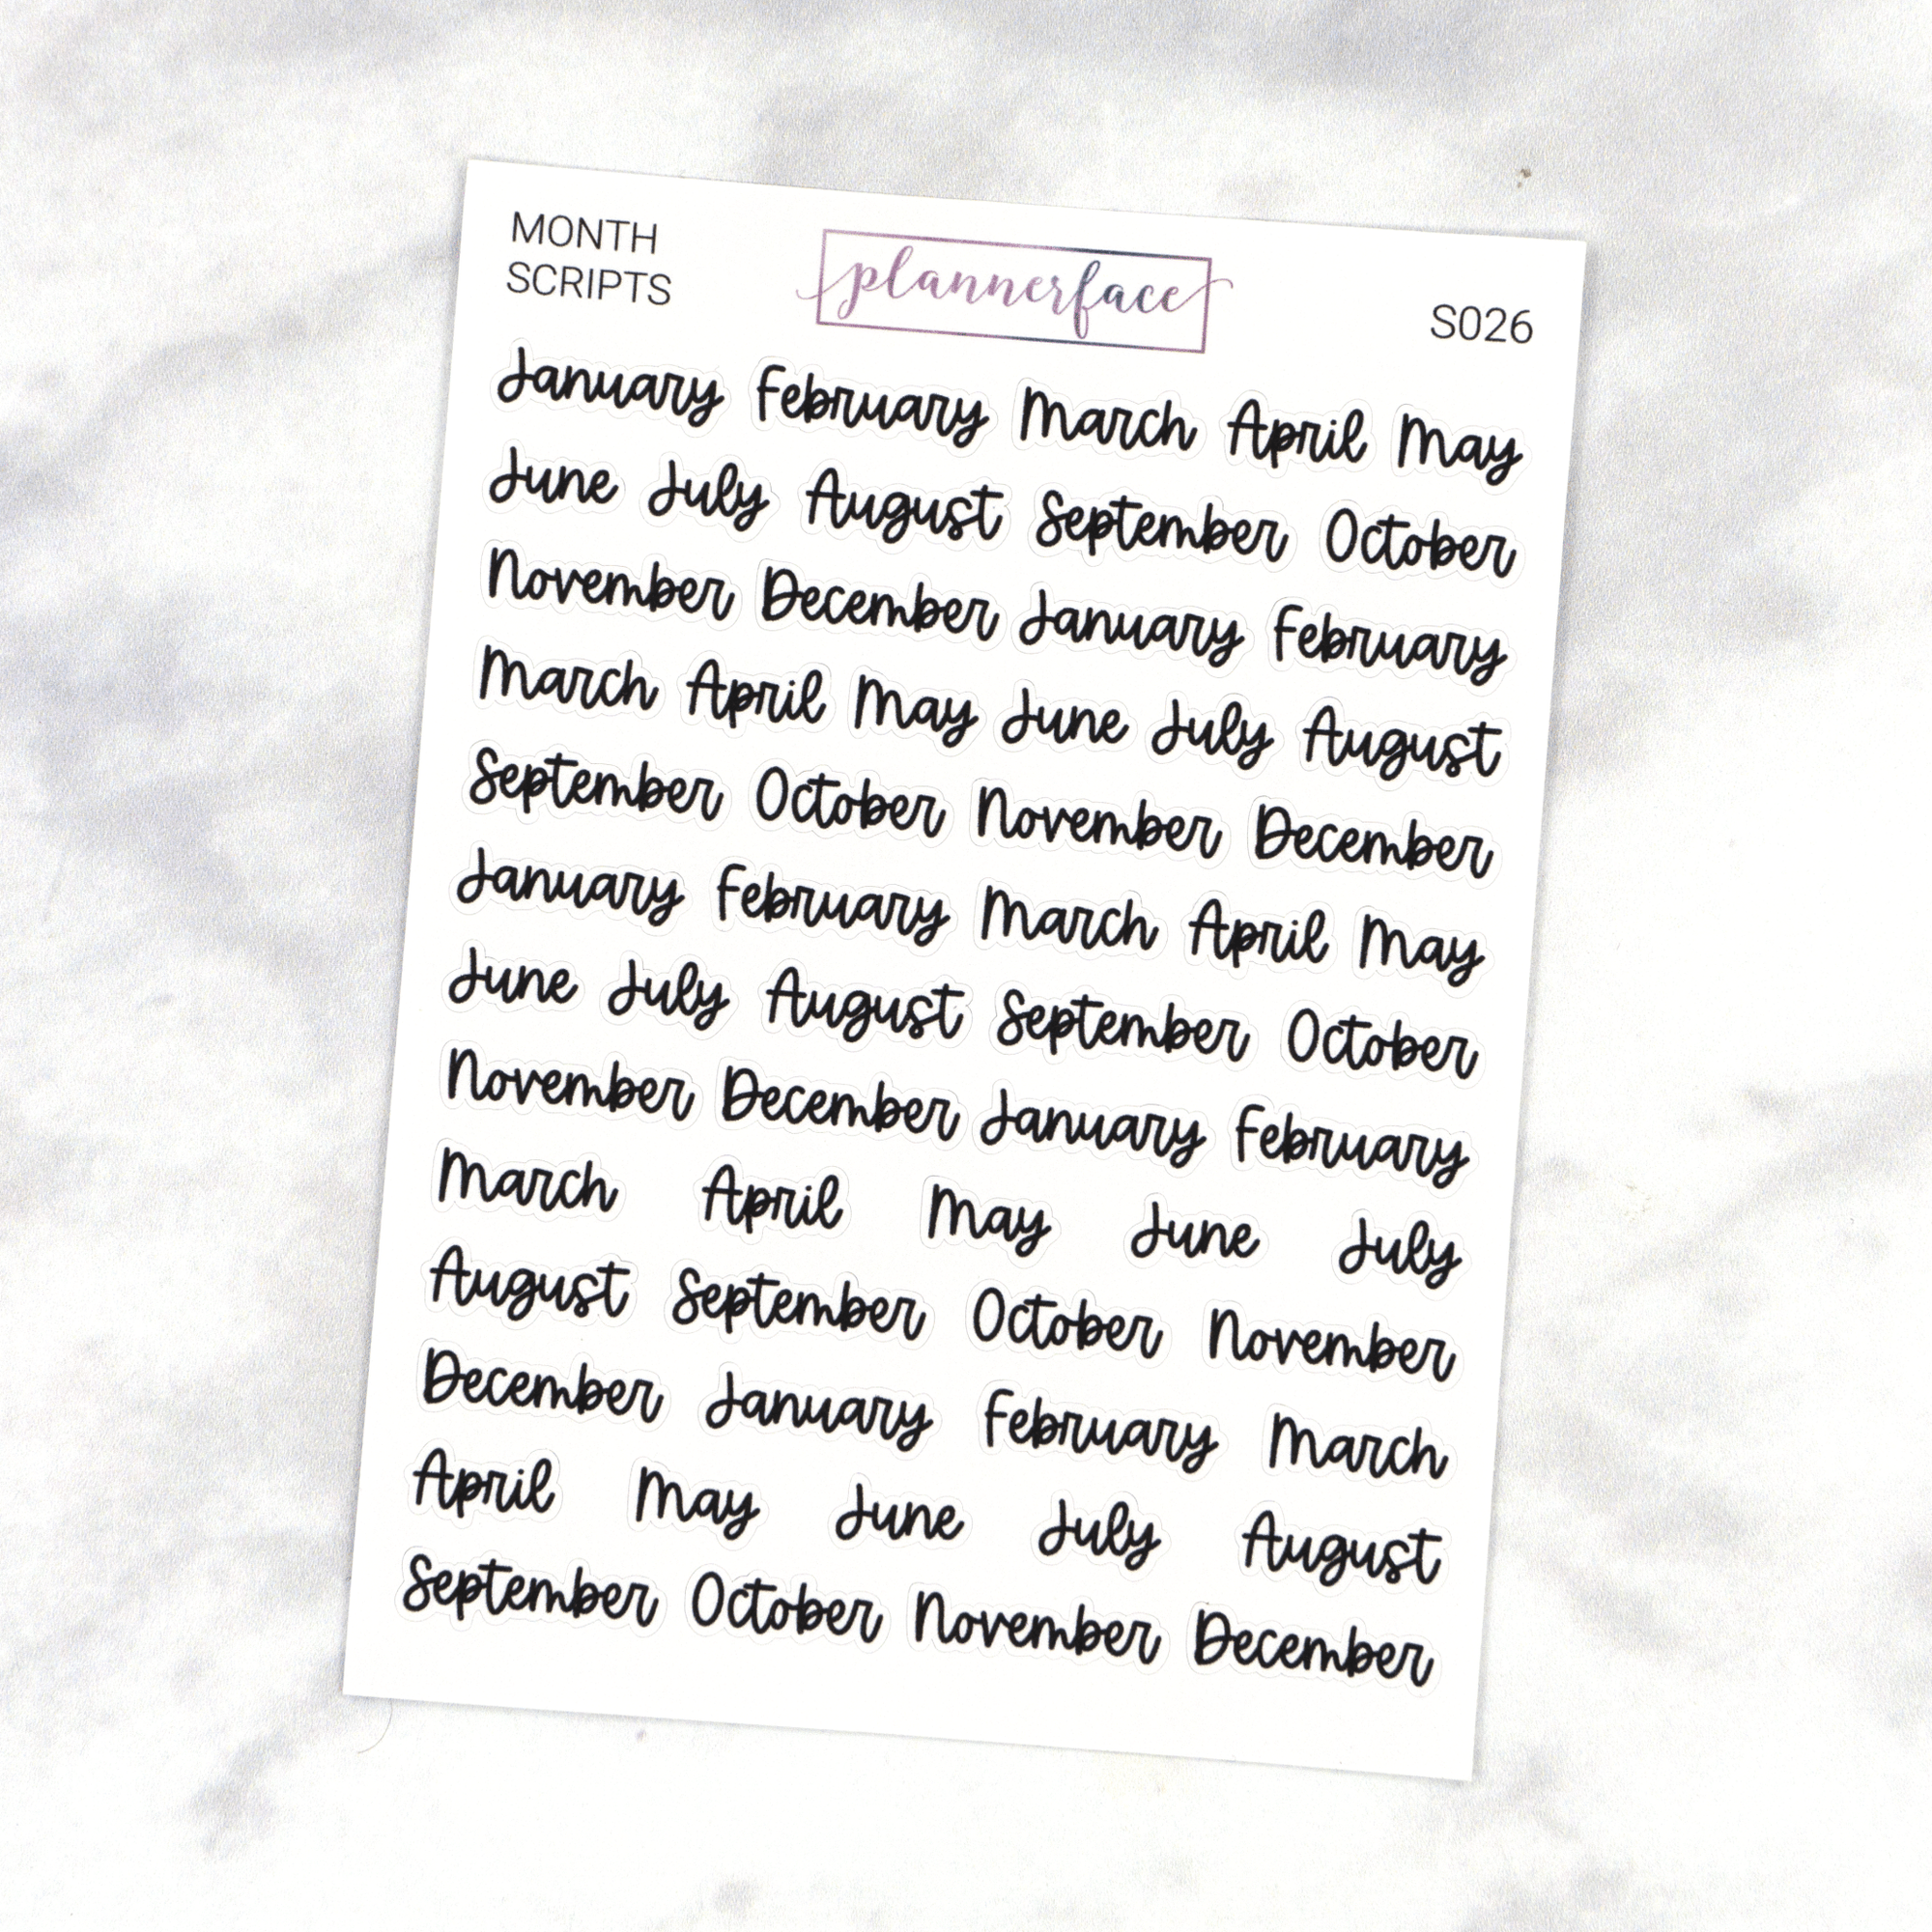 MONTH
SCRIPTS
plannerface
S026
January February March April May
June July August September October
November December January February
March April May June July August
September October November December
January February March April May
June July August September October
November December January February
March April May June July
August September October November
December January February March
April May June July August
September October November December